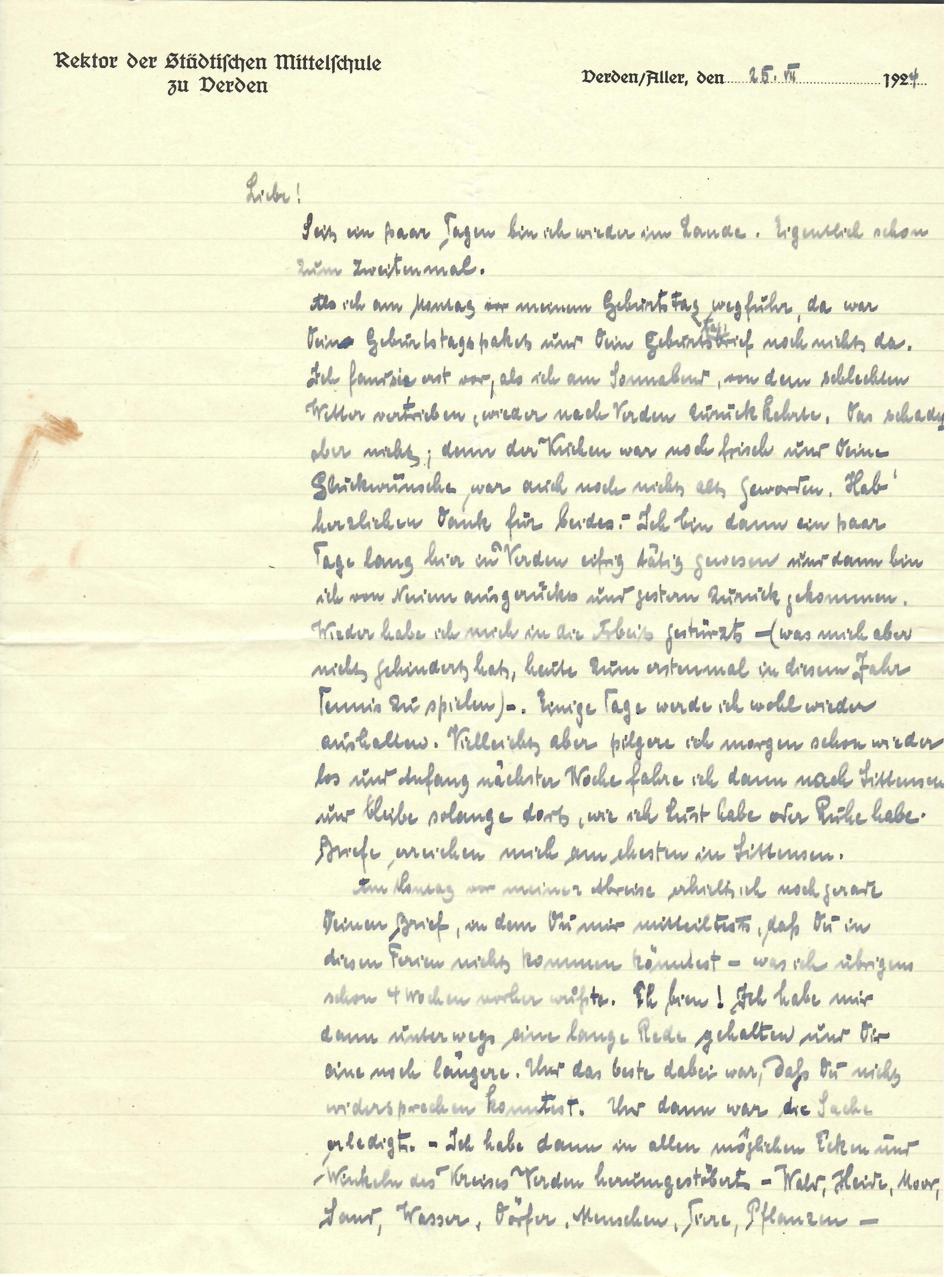 Rektor der Städtischen Mittelschule
zu Verden
Verden/Aller, den 25. VII 1924
Liebe!
Seit ein paar Tagen bin ich wieder im Lande. Eigentlich schon
zum zweitenmal.
Als ich am Montag vor meinem Geburtstag wegfuhr, da war
Dein Geburtstagspaket und Dein Geburtstagsbrief noch nicht da.
Ich fand sie erst vor, als ich am Sonnabend, von dem schlechten
Wetter vertrieben, wieder nach Verden zurückkehrte. Das schadet
aber nichts; denn der Kuchen war noch frisch und Deine
Glückwünsche war auch noch nicht alt geworden. Hab'
herzlichen Dank für beides. – Ich bin dann ein paar
Tage lang hier in Verden eifrig tätig gewesen und dann bin
ich von Neuem ausgerückt und gestern zurückgekommen.
Wieder habe ich mich in die Arbeit gestürzt – (was mich aber
nicht gehindert hat, heute zum erstenmal in diesem Jahr
Tennis zu spielen) –. Einige Tage werde ich wohl wieder
aushalten. Vielleicht aber pilgere ich morgen schon wieder
los und Anfang nächster Woche fahre ich dann nach Sittensen
und bleibe solange dort, wie ich Lust habe oder Ruhe habe.
Briefe erreichen mich am ehesten in Sittensen.
Am Montag vor meiner Abreise erhielt ich noch gerade
Deinen Brief, in dem Du mir mitteiltest, daß Du in
diesen Ferien nicht kommen könntest – was ich übrigens
schon 4 Wochen vorher wußte. Eh bien! Ich habe mir
dann unterwegs eine lange Rede gehalten und Dir
eine noch längere. Und das beste dabei war, daß Du nicht
widersprechen konntest. Und dann war die Sache
erledigt. – Ich habe dann in allen möglichen Ecken und
Winkeln des Kreises Verden herumgestöbert – Wald, Heide, Moor,
Sand, Wasser, Dörfer, Menschen, Tiere, Pflanzen –